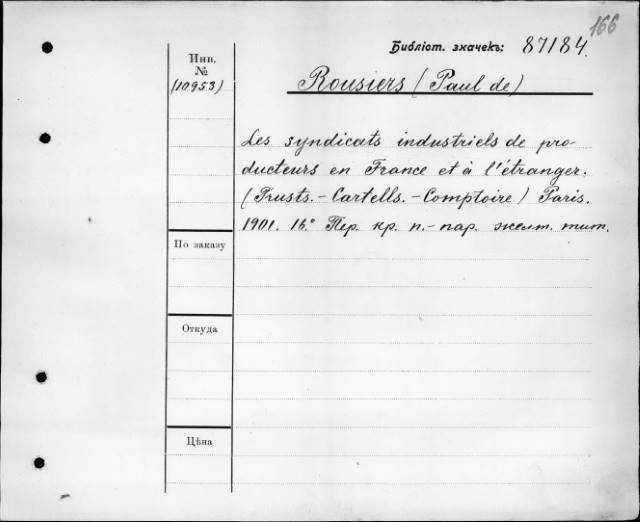 166
Библіот. значекъ: 87184.
Инв.
№
(10953)
Rousiers (Paul de)
Les syndicats industriels de pro-
ducteurs en France et à l'étranger.
(Trusts.-Cartells.-Comptoire) Paris.
1901. 16.° Пер. кр. п.-пар. желт. тит.
По заказу
Откуда
Цѣна